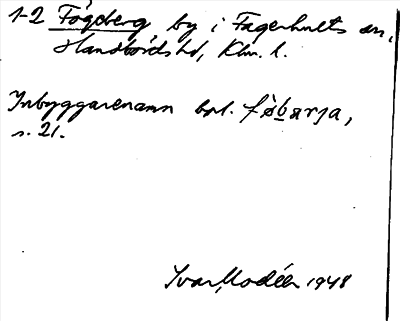 1-2 Fågeberg by i Fagerhults sn,
Handbörds hd, Klm. l.
Inbyggarenamn bpl. fòbarja,
s. 21.
Ivar Modéer 1948